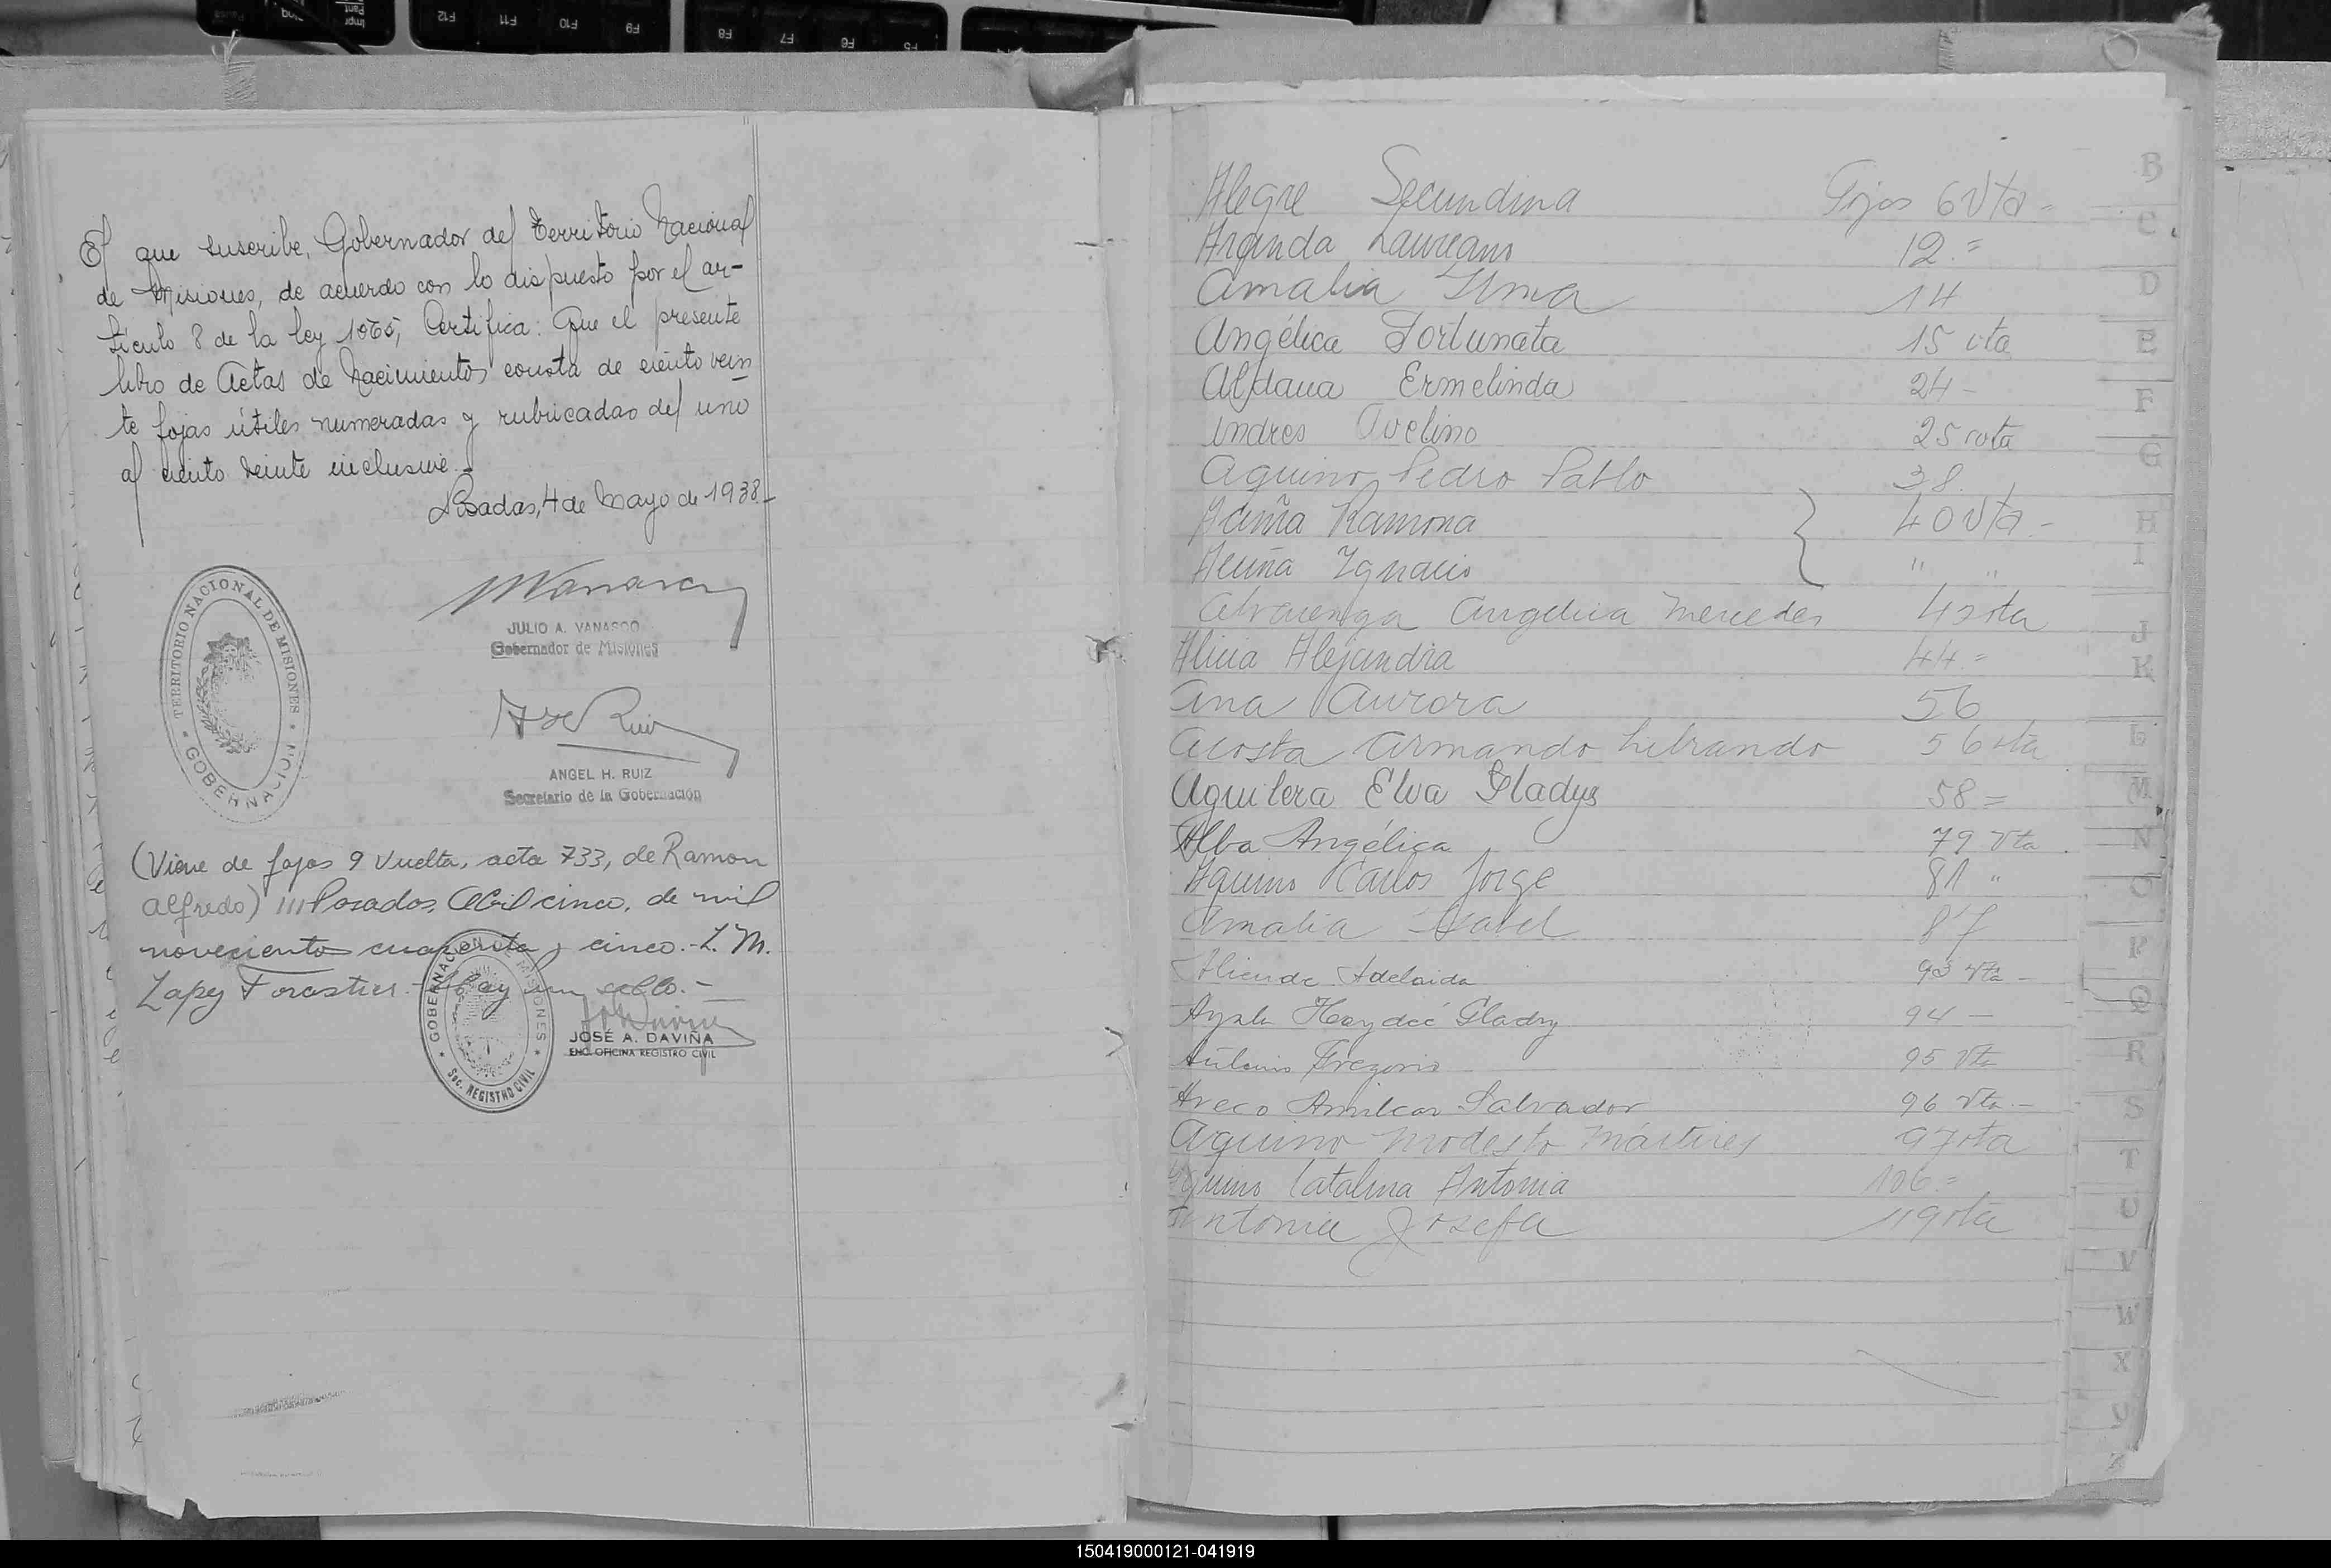 El que suscribe, Gobernador del Territorio Nacional
de Misiones, de acuerdo con lo dispuesto por el ar-
tículo 8 de la ley 1565, Certifica: Que el presente
libro de Actas de Nacimientos consta de ciento vein
te fojas útiles numeradas y rubricadas del uno
al ciento veinte inclusive.-
Posadas, 4 de Mayo de 1938.-
TERRITORIO NACIONAL DE MISIONES
GOBERNACION
JULIO A. VANASCO
Gobernador de Misiones
ANGEL H. RUIZ
Secretario de la Gobernación
(Viene de fojas 9 vuelta, acta 733, de Ramon
Alfredo) ///Posadas, Abril cinco, de mil
novecientos cuarenta y cinco.- L. M.
Zapey Forastier.- Hay un sello.-
GOBERNACION DE MISIONES
Sec. REGISTRO CIVIL
JOSÉ A. DAVIÑA
ENC. OFICINA REGISTRO CIVIL
Alegre Secundina Fojas 6 Vta -
Aranda Laureano 12.=
Amalia Irma 14
Angélica Fortunata 15 vta
Aldana Ermelinda 24 -
Andres Avelino 25 vta
Aquino Pedro Pablo 38.
Acuña Ramona 40 Vta.-
Acuña Ignacio " "
Alvarenga Angelica Mercedes vta
Alicia Alejandra 44.=
Ana Aurora 56
Acosta Armando Librando 56 vta
Aguilera Elva Gladys 58 =
Alba Angélica 79 Vta.
Aquino Carlos Jorge 81 "
Amalia Isabel 87
Aliende Adelaida 93 Vta -
Ayala Haydeé Gladys 94 -
Gregorio 95 Vta
Areco Amilcar Salvador 96 Vta.-
Aquino Modesto Mártires 97 vta
Aquino Catalina Antonia 106.=
Antonia Josefa 119 vta
B
C
D
E
F
G
H
I
J
K
L
M
N
O
P
Q
R
S
T
U
V
W
X
150419000121-041919